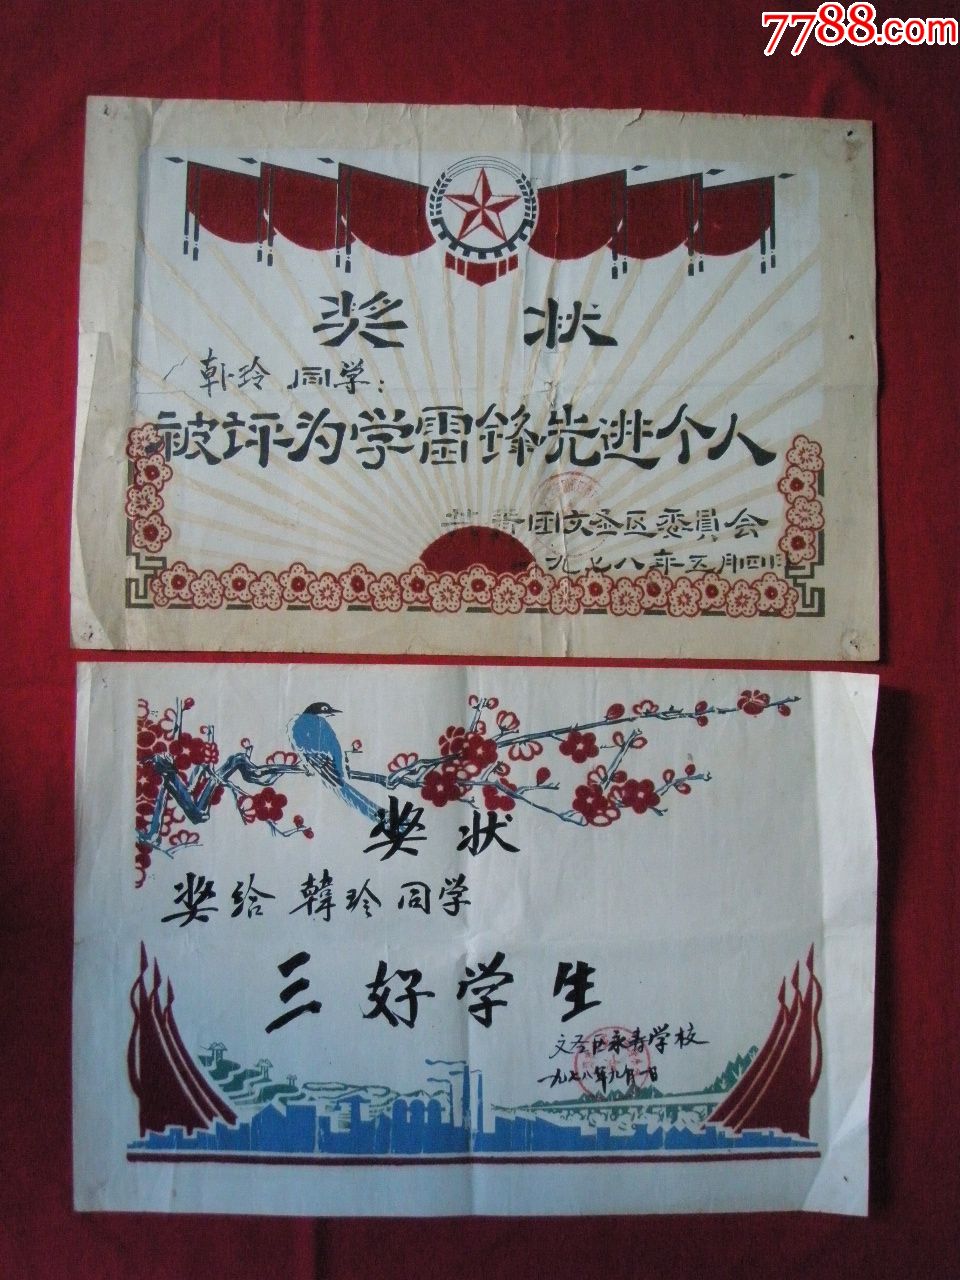 7788.com
奖 状
韩玲 同学：
被评为学雷锋先进个人
共青团文圣区委員会
一九七八年五月四日
奖 状
奖给 韓玲 同学
三好学生
文圣区永寿学校
一九七八年九月一日